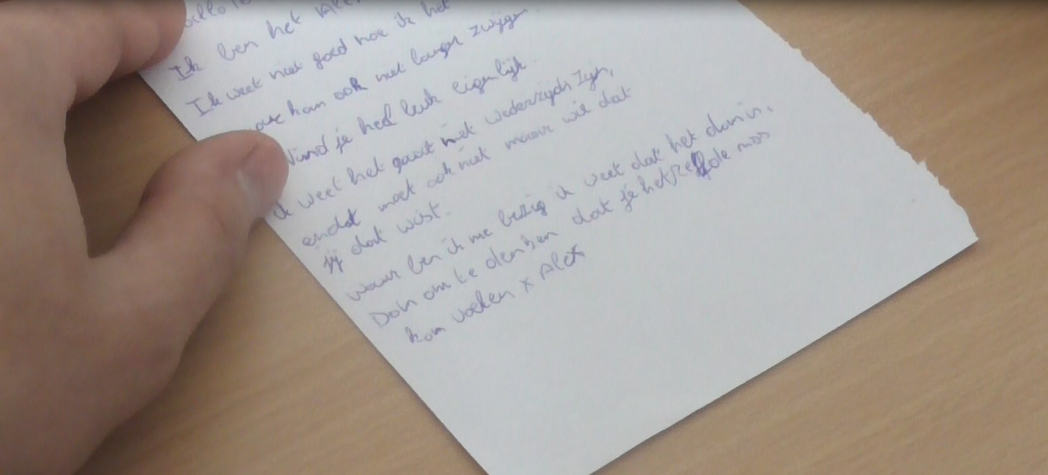 Ik ben het Alex
Ik weet niet goed hoe ik het
kan ook niet langer zwijgen
Vind je heel leuk eigenlijk.
Ik weet het gaat niet wederzijds zijn,
endat moet ook niet maar wil dat
jij dat wist.
waar ben ik me bezig ik weet dat het dom is.
Dom om te denken dat je hetzelfde moss
kon voelen x Alex